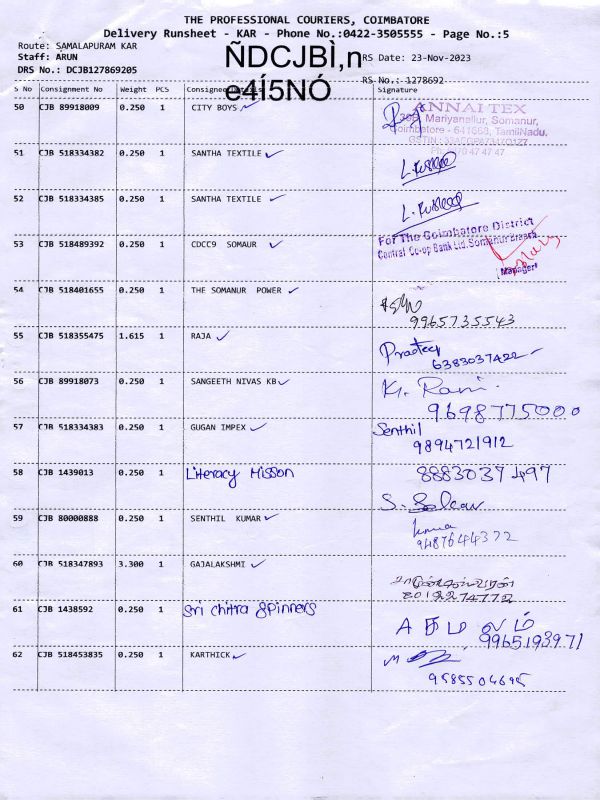 THE PROFESSIONAL COURIERS, COIMBATORE
Delivery Runsheet - KAR - Phone No.:0422-3505555 - Page No.:5
Route: SAMALAPURAM KAR
Staff: ARUN
ÑDCJBÌ,n
RS Date: 23-Nov-2023
DRS No.: DCJB127869205
e4Í5NÓ
RS No.: 1278692
S No Consignment No Weight PCS Consignee Details Signature
50 CJB 89918009 0.250 1 CITY BOYS ✓
ANNAI TEX
Mariyanallur, Somanur,
Coimbatore - 641668, TamilNadu.
51 CJB 518334382 0.250 1 SANTHA TEXTILE ✓
52 CJB 518334385 0.250 1 SANTHA TEXTILE ✓
53 CJB 518489392 0.250 1 CDCC9 SOMAUR ✓
For The Coimbatore District
Central Co-op Bank Ltd. Somanur Branch
Manager
54 CJB 518401655 0.250 1 THE SOMANUR POWER ✓
9965735543
55 CJB 518355475 1.615 1 RAJA ✓
Pradeep
6383037422
56 CJB 89918073 0.250 1 SANGEETH NIVAS KB ✓
K. Rani.
9698775000
57 CJB 518334383 0.250 1 GUGAN IMPEX ✓
Senthil
9894721912
58 CJB 1439013 0.250 1 Literacy Misson
8883037497
59 CJB 80000888 0.250 1 SENTHIL KUMAR ✓
9487644372
60 CJB 518347893 3.300 1 GAJALAKSHMI ✓
61 CJB 1438592 0.250 1 Sri Chitra Spinners
9965193971
62 CJB 518453835 0.250 1 KARTHICK ✓
9585504695